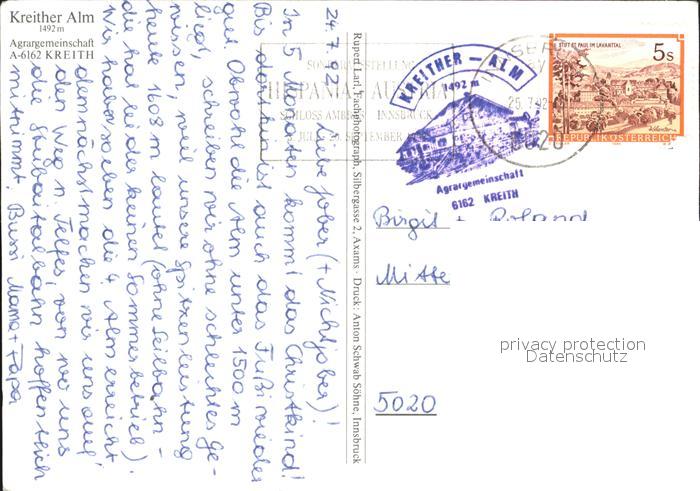 Kreither Alm
1492 m
Agrargemeinschaft
A-6162 KREITH
24.7.92 Liebe jober (+ Nichtjober)!
In 5 Monaten kommt das Christkind!
Bis dorthin ist auch das Fußi wieder
gut. Obwohl die Alm unter 1500 m
liegt, schreiben wir ohne schlechtes Ge-
wissen, weil unsere Spitzenleistung
heute 1603 m lautet (ohne Seilbahn -
die hat leider keinen Sommerbetrieb).
Wir haben soeben die 4. Alm erreicht
demnächst machen wir uns auf
den Weg n. Telfes, von wo uns
die Stubaitalbahn hoffentlich
mitnimmt. Bussi Mama + Papa
Rupert Larl, Fachphotograph, Silbergasse 2, Axams · Druck: Anton Schwab Söhne, Innsbruck
SONDERAUSSTELLUNG
HISPANIA AUSTRIA
SCHLOSS AMBRAS INNSBRUCK
JULI SEPTEMBER
KREITHER - ALM
1492 m
Agrargemeinschaft
6162 KREITH
25.7.92
6020
STIFT ST. PAUL IM LAVANTTAL
5 S
REPUBLIK ÖSTERREICH
Birgit + Roland
Mitte
5020
privacy protection
Datenschutz